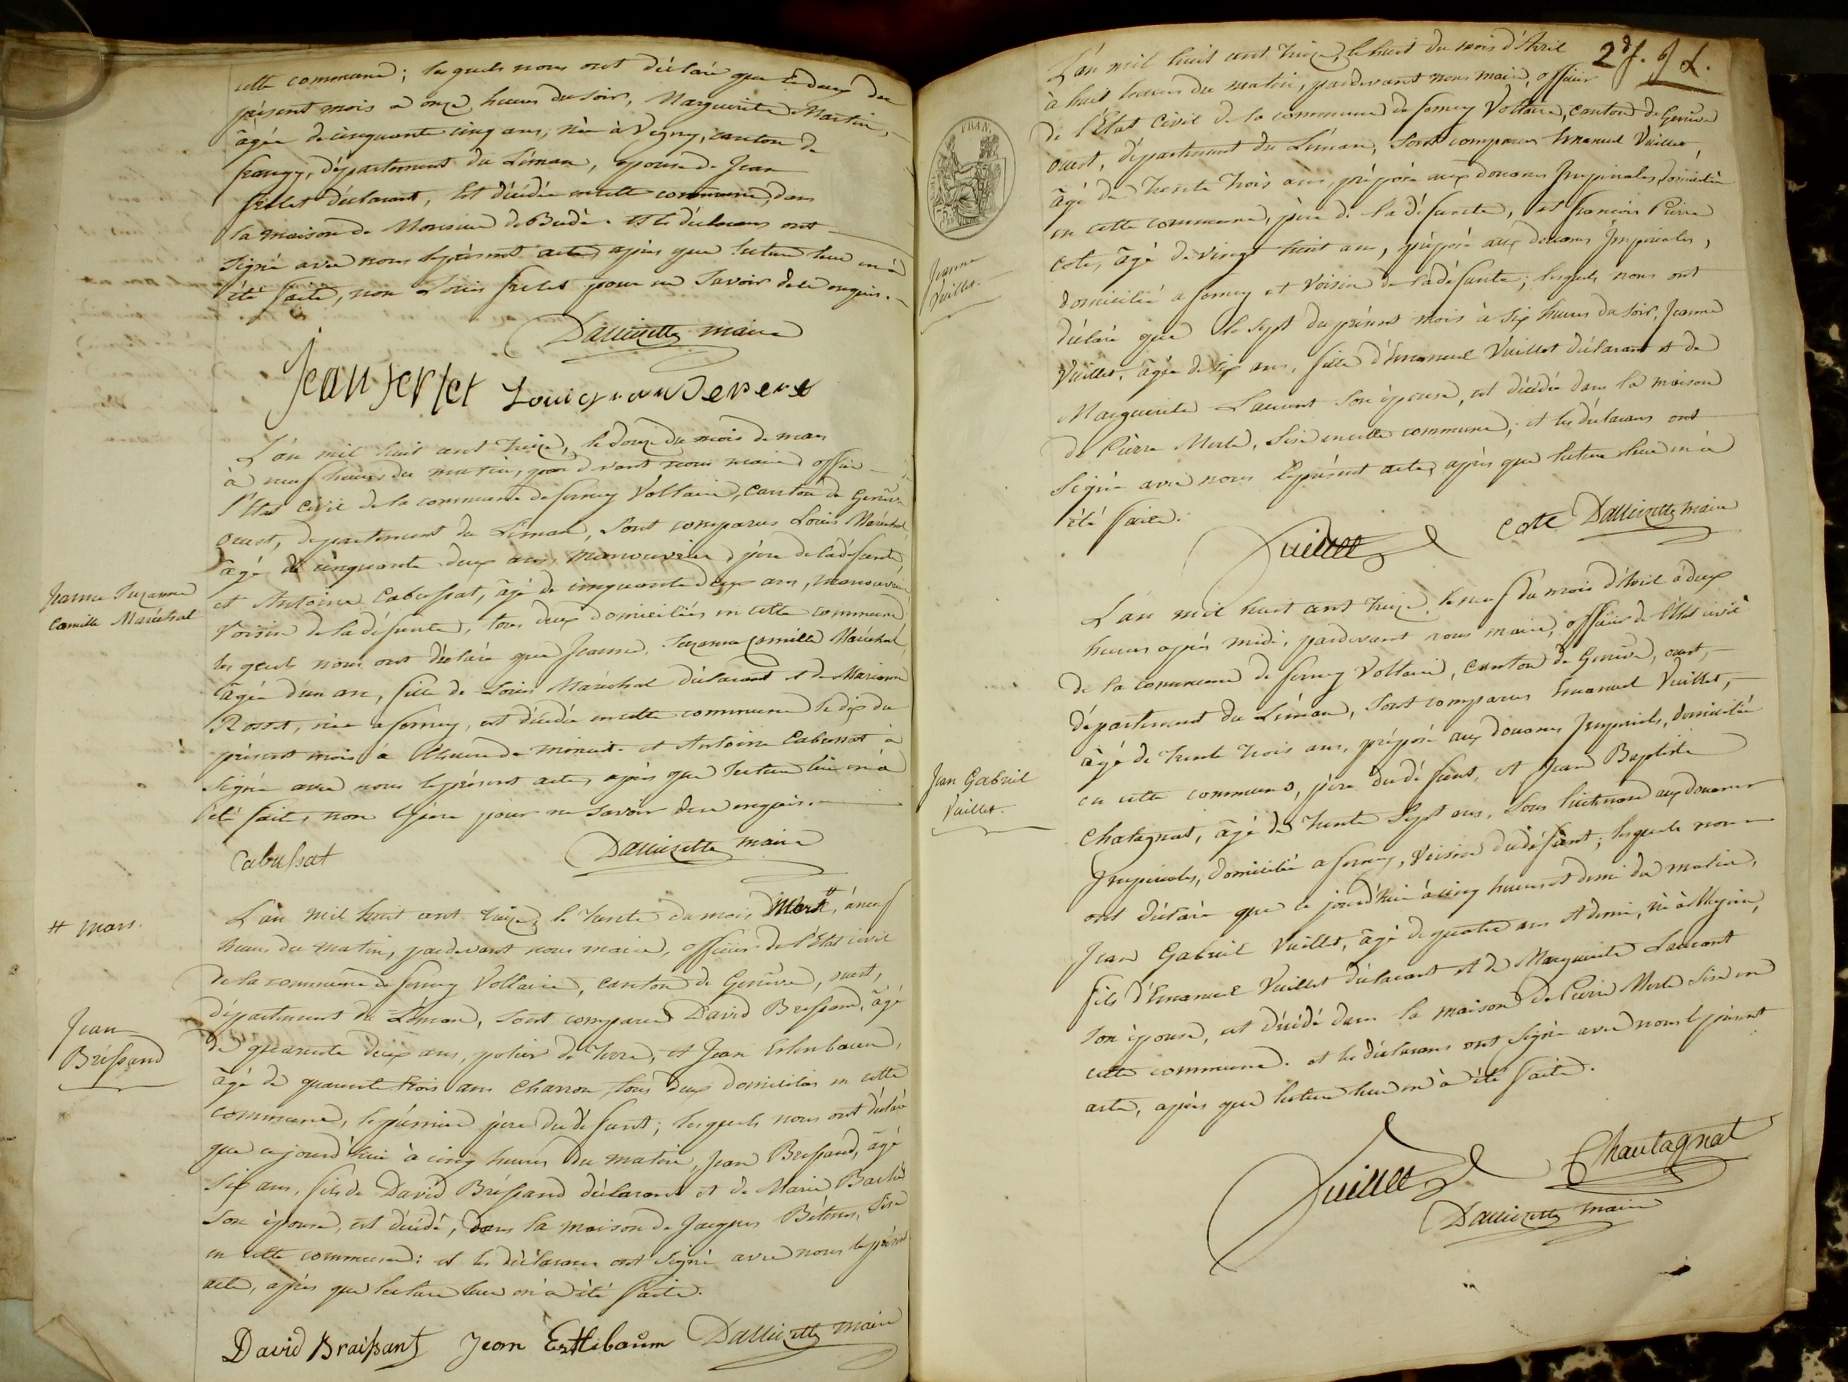 cette commune ; lesquels nous ont déclaré que le deux du
présent mois à onze heures du soir, Marguerite Martin,
âgée de cinquante cinq ans, née à Vegny, canton de
frangy, département du Léman, épouse de Jean
déclarant, est décédée en cette commune, dans
la maison de Monsieur de Budé. et les déclarans ont
signé avec nous le présent acte, après que lecture leur en a
été faite, non pour ne savoir de ce requis.
maire
Jean
L'an mil huit cent treize, le douze du mois de mars
à neuf heures du matin, par devant nous maire, officier
l'Etat civil de la commune de ferney Voltaire, canton de Genève
ouest, département du Léman, sont comparus Louis Maréchal
âgé de cinquante deux ans, manouvrier, père de la défunte,
et Antoine Cabussat, âgé de cinquante deux ans, manouvrier
voisin de la défunte, tous deux domiciliés en cette commune
lesquels nous ont déclaré que Jeanne Suzanne Camille Maréchal,
Jeanne Suzanne
Camille Maréchal
âgée d'un an, fille de Louis Maréchal déclarant et de Marianne
née a ferney, est décédée en cette commune le dix du
présent mois à l'heure de minuit. et Antoine Cabussat a
signé avec nous le présent acte, après que lecture lui en a
été faite, non le père pour ne savoir de ce requis.
Cabussat maire
L'an mil huit cent treize, le trente du mois Mars #, à neuf
# mars.
heures du matin, pardevant nous maire, officier de l'Etat civil
de la commune de ferney Voltaire, canton de Genève, ouest,
département du Léman, sont comparus David Bressand, âgé
de quarante deux ans, potier de terre, et Jean
âgé de quarante trois ans charron, tous deux domiciliés en cette
Jean
Bréssand
commune, le premier père du défunt ; lesquels nous ont déclaré
que ce jourd'hui à cinq heures du matin, Jean Bressand, âgé
six ans, fils de David Bréssand déclarant et de Marie
son épouse, est décédé, dans la maison de Jacques Bétems, sise
en cette commune : et les déclarans ont signé avec nous le présent
acte, après que lecture leur en a été faite.
David Braissant Jean maire
2d f.
L'an mil huit cent treize, le huit du mois d'Avril
à huit heures du matin, pardevant nous maire, officier
de l'Etat civil de la commune de ferney Voltaire, canton de Genève
ouest, département du Léman, sont comparus Emanuel Vuillet,
âgé de trente trois ans, préposé aux douanes Impériales, domicilié
en cette commune, père de la défunte, et françois Pierre
Cote, âgé de vingt huit ans, préposé aux douanes Impériales,
Jeanne
Vuillet.
domicilié a ferney et voisin de la défunte ; lesquels nous ont
déclaré que le sept du présent mois à six heures du soir, Jeanne
Vuillet, âgée de six ans, fille d'Emanuel Vuillet déclarant et de
Marguerite Laurent son épouse, est décédée dans la maison
de Pierre Merle, sise en cette commune ; et les déclarans ont
signé avec nous le présent acte, après que lecture leur en a
été faite.
Vuillet Cote maire
L'an mil huit cent treize, le neuf du mois d'Avril à deux
heures après midi, pardevant nous maire, officier de l'Etat civil
de la commune de ferney Voltaire, canton de Genève, ouest,
département du Léman, sont comparus Emanuel Vuillet,
âgé de trente trois ans, préposé aux douanes Impériales, domicilié
en cette commune, père du défunt, et Jean Baptiste
Jean Gabriel
Vuillet.
Chatagnat, âgé de trente sept ans, sous lieutenant aux douanes
Impériales, domicilié a ferney, voisin du défunt ; lesquels nous
ont déclaré que ce jourd'hui à cinq heures et demi du matin,
Jean Gabriel Vuillet, âgé de quatre ans et demi, né à Meyrin,
fils d'Emanuel Vuillet déclarant et de Marguerite Laurent
son épouse, est décédé dans la maison de Pierre Merle sise en
cette commune. et les déclarans ont signé avec nous le présent
acte, après que lecture leur en a été faite.
Vuillet Chautagnat
maire